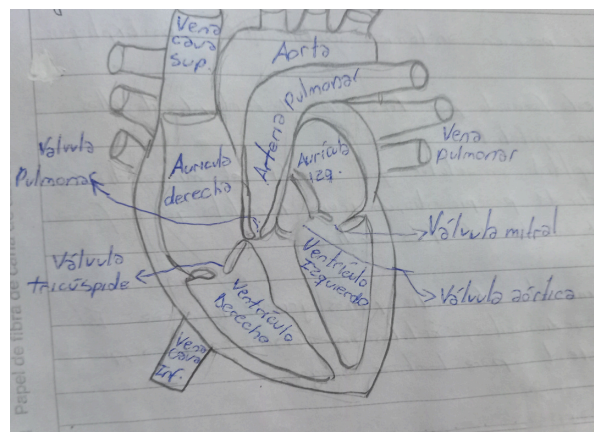 Vena
cava
Sup.
Aorta
Arteria Pulmonar
Válvula
Pulmonar
Aurícula
derecha
Aurícula
izq.
Vena
Pulmonar
Válvula mitral
Válvula
tricúspide
Ventrículo
Izquierdo
Válvula aórtica
Ventrículo
Derecho
Vena
Cava
Inf.
Papel de fibra de